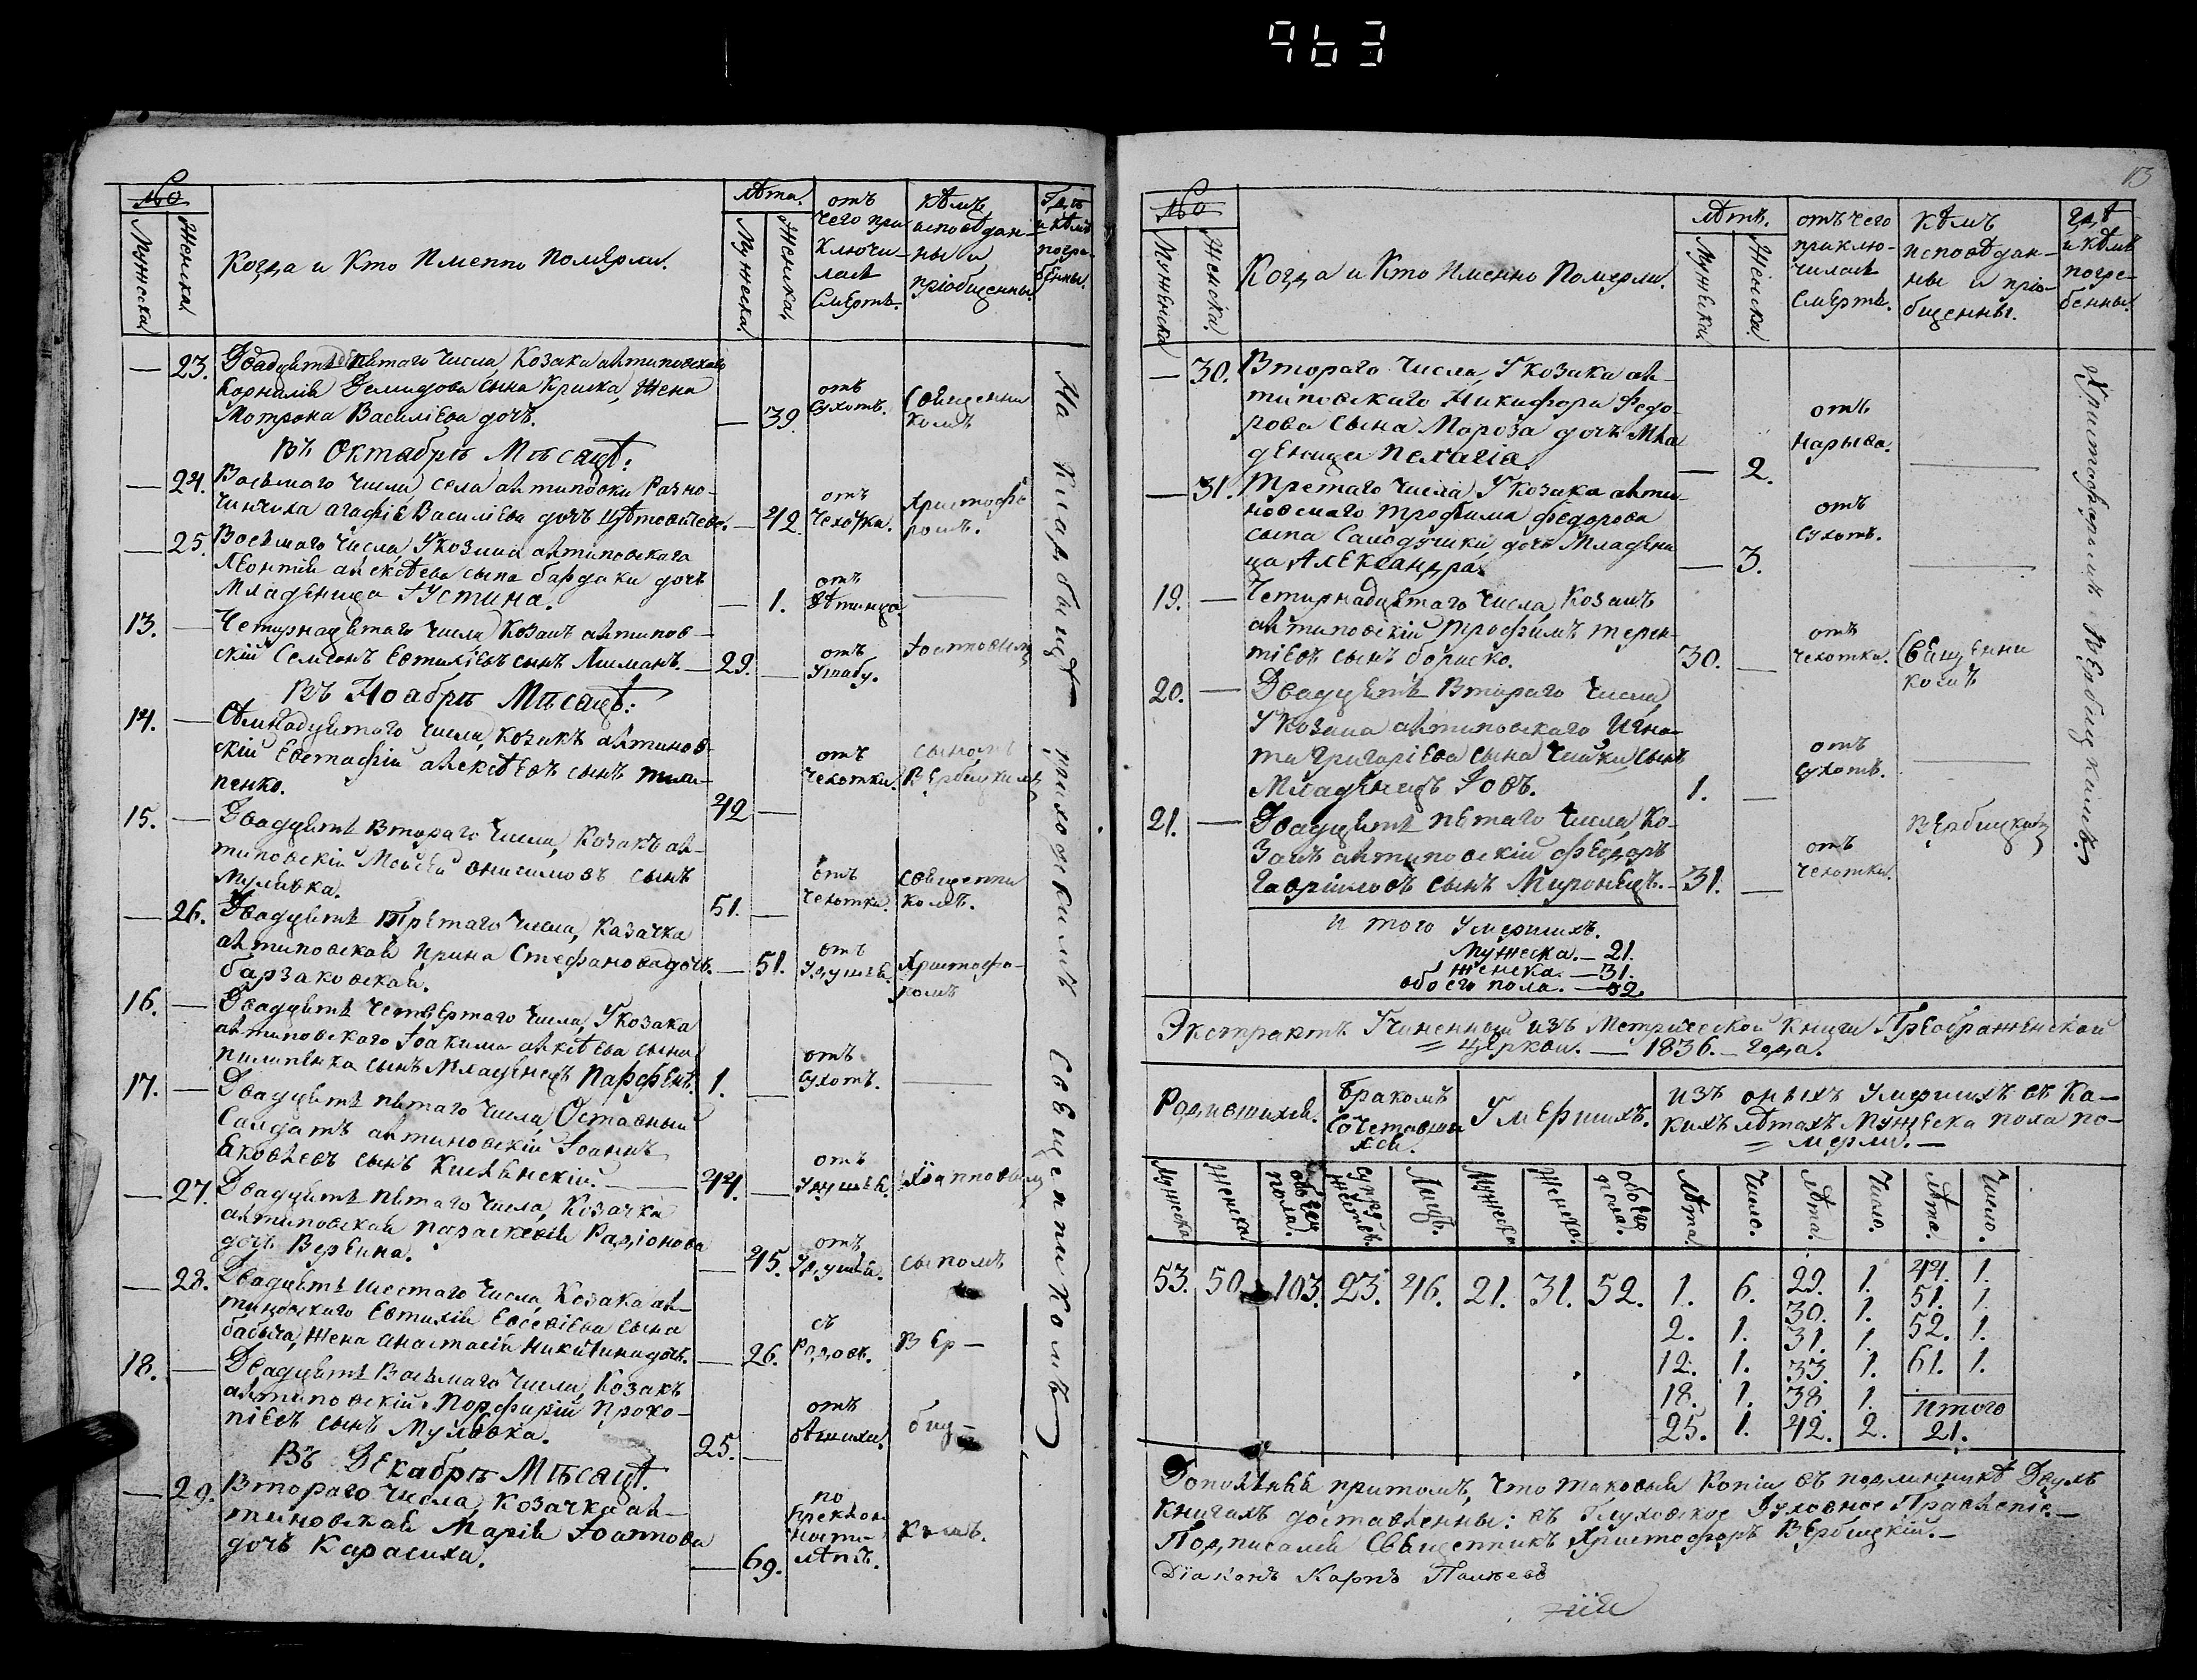 963
№
Мужеска
Женска
Когда и Кто Именно Померли.
Лѣта.
Мужеска
Женска
отъ
чего при
ключи
лась
Смерть.
Кѣмъ
исповѣдан-
ны и
пріобщенны
Гдѣ
и кѣмъ
погре-
бенны.
— 23. Двадцять пятого числа, Козака антиповского
Корнилія Демидова сына Криска, Жена
Мотрона Василіева дочь. — 39. отъ Сухотъ. Священни
комъ
Въ Октябрѣ Мѣсяцѣ:
— 24. Восьмаго числа села антиповки Разно-
чинчиха агафія Василіева дочь — 42. отъ Чехотки. Христофо
ромъ.
— 25. Восьмаго числа, У козака антиповского
Леонтія алексѣева сына бардаки дочь
Младеница Іустина. — 1. отъ
13. — Четирнадцятаго числа, Козакъ антипов-
скій Семіонъ Евтихіевъ сынъ — 29. — отъ Іоанновим
Въ Ноябрѣ Мѣсяцѣ:
14. — Семнадцятаго числа, козакъ антипов-
скій Евстафій алексѣевъ сынъ
пенко. 42 — отъ Чехотки. сыномъ
Вербицкимъ
15. — Двадцять втораго числа, Козакъ ан-
типовскій Мойсей онисимовъ сынъ
Мулявка. 51. — отъ Чехотки. священни
комъ.
— 26. Двадцять Третаго числа, Казачка
антиповская Ирина Стефанова дочь.
барзаковская. — 51. отъ Удушья. Христофо-
ромъ
16. — Двадцять Четвертаго числа, У козака
антиповского Іоакима алексѣева сына
пилипенка сынъ Младенецъ Парфенъ. 1. — отъ Сухотъ. —
17. — Двадцять пятаго числа, Оставный
Салдатъ антиповскій Іоаннъ
Яковлевъ сынъ 44. — отъ Удушья. Іоанновим
— 27. Двадцять пятаго числа, Козачка
антиповская параскевія Радіонова
дочь Вервина. — 45. отъ Удушья. сыномъ
— 28. Двадцять шестаго числа, Козака ан-
типовского Евтихія Евсевіева сына
бабыча, жена анастасія Никитина дочь. — 26. съ Родовъ. Вер-
18. — Двадцять Восьмаго числа, Козакъ
антиповскій Порфирій Проко-
піевъ сынъ Мулявка. 25. — отъ биц-
Въ Декабрѣ Мѣсяцѣ.
— 29. Втораго числа, козачка ан-
типовская Марія Іоаннова
дочь Карасиха. — 69. по преклон
ности
лѣтъ. кимъ.
На кладбищѣ приходскимъ Священникомъ
13
№
Мужеска
Женска.
Когда и Кто Именно Померли.
Лѣтъ.
Мужеска
Женска.
отъ чего
приклю-
чилась
Смерть.
Кѣмъ
исповѣдан-
ны и пріо-
бщенны.
гдѣ
и кѣмъ
погре-
бенны.
— 30. Втораго числа, У козака ан-
типовскаго Никифора Федо-
рова сына Мороза дочь Мла
деница Пелагіа. — 2. отъ Нарыва. —
— 31. Третаго числа, У козака анти-
повскаго трофима федорова
сына Самодушки дочь Младени
ца Александра. — 3. отъ Сухотъ. —
19. — Четирнадцятаго числа, Козакъ
антиповскій трофимъ терен-
тіевъ сынъ бориско. 30. — отъ Чехотки. Священни
комъ
20. — Двадцять Втораго числа,
У козака антиповскаго Игна-
та григаріева сына чайки сынъ
Младенецъ Іовъ. 1. — отъ Сухотъ. —
21. — Двадцять пятаго числа, Ко-
закъ антиповскій феодоръ
гавріиловъ сынъ Миронецъ. 31. — отъ Чехотки. Вербицким
Христофоромъ Вербицкимъ
и того Умершихъ.
Мужеска. — 21.
Женска. — 31.
обоего пола. — 52.
Экстрактъ Учиненный изъ Метрической книги Преображенской
= церкви. — 1836. — года.
Родившихся.
бракомъ
сочетавши
хся.
Умершихъ.
изъ оныхъ Умершихъ въ Ка-
кихъ лѣтахъ Мужеска пола по-
= мерли. —
Мужеска Женска обоего пола. супру жествъ. Лицъ. Мужеска Женска. обоего пола. Лѣта. Число. Лѣта. Число. Лѣта. Число.
53. 50. 103. 23. 46. 21. 31. 52. 1. 6. 29. 1. 44. 1.
2. 1. 30. 1. 51. 1.
12. 1. 31. 1. 52. 1.
18. 1. 33. 1. 61. 1.
25. 1. 38. 1. Итого
42. 2. 21.
притомъ, что таковыя Копіи въ подлинникѣ Двухъ
книгахъ доставленны: въ Глуховское Духовное Правленіе. —
Подписался Священникъ Христофоръ Вербицкій. —
Діаконъ Карпъ